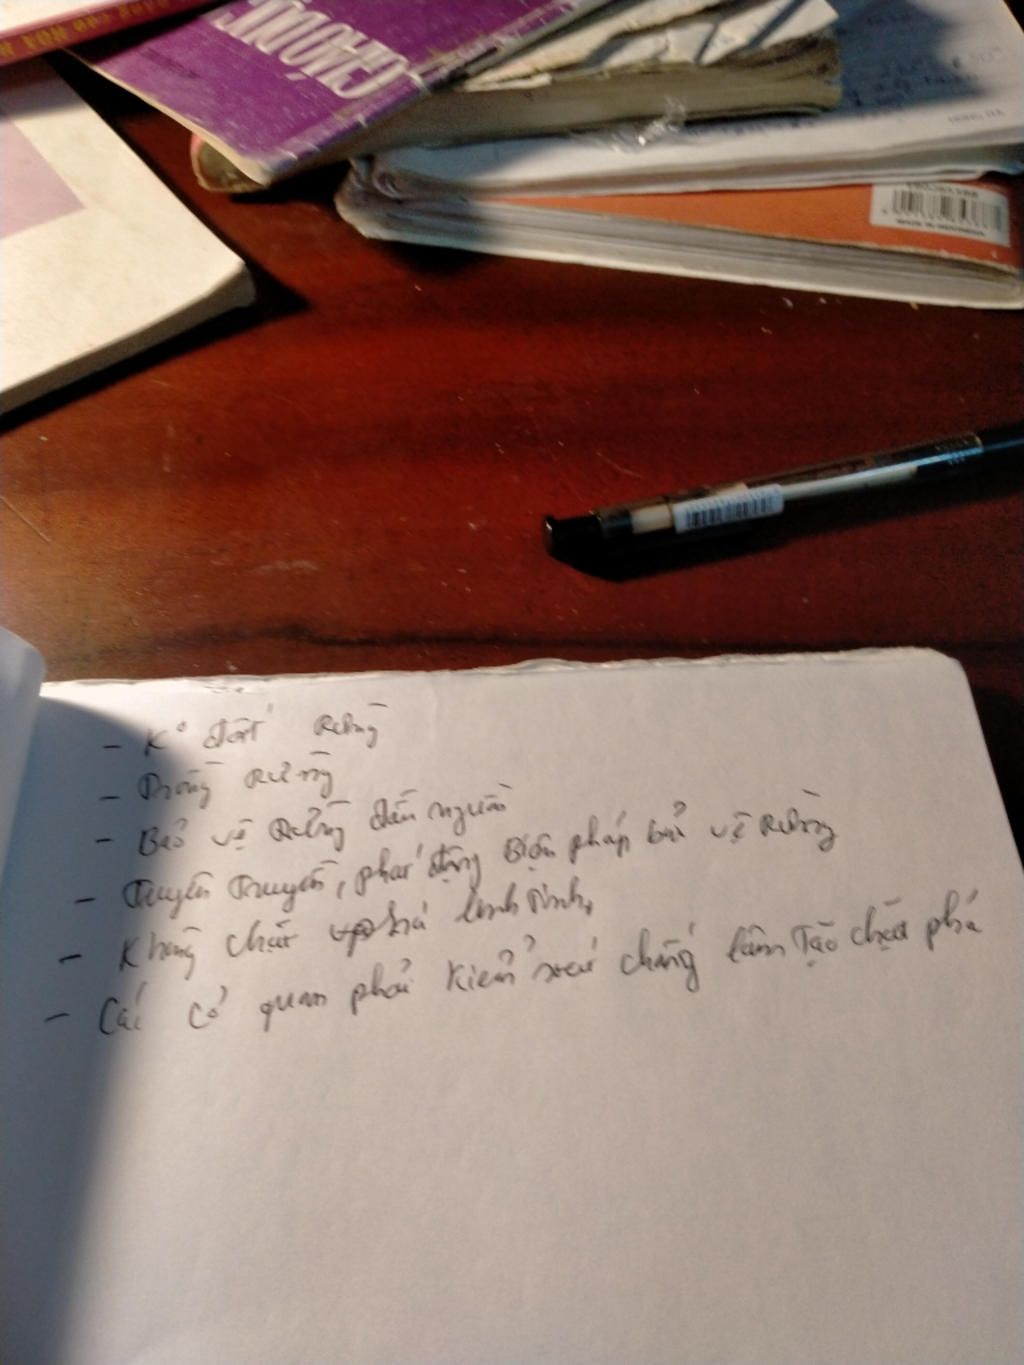 - K° đốt Rừng
- Trồng Rừng
- Bảo vệ Rừng đầu nguồn
- Tuyên Truyền, phát động Biện pháp bảo vệ Rừng
- Không chặt phá linh Tinh,
- Các cơ quan phải kiểm soát chống lâm Tặc chặt phá